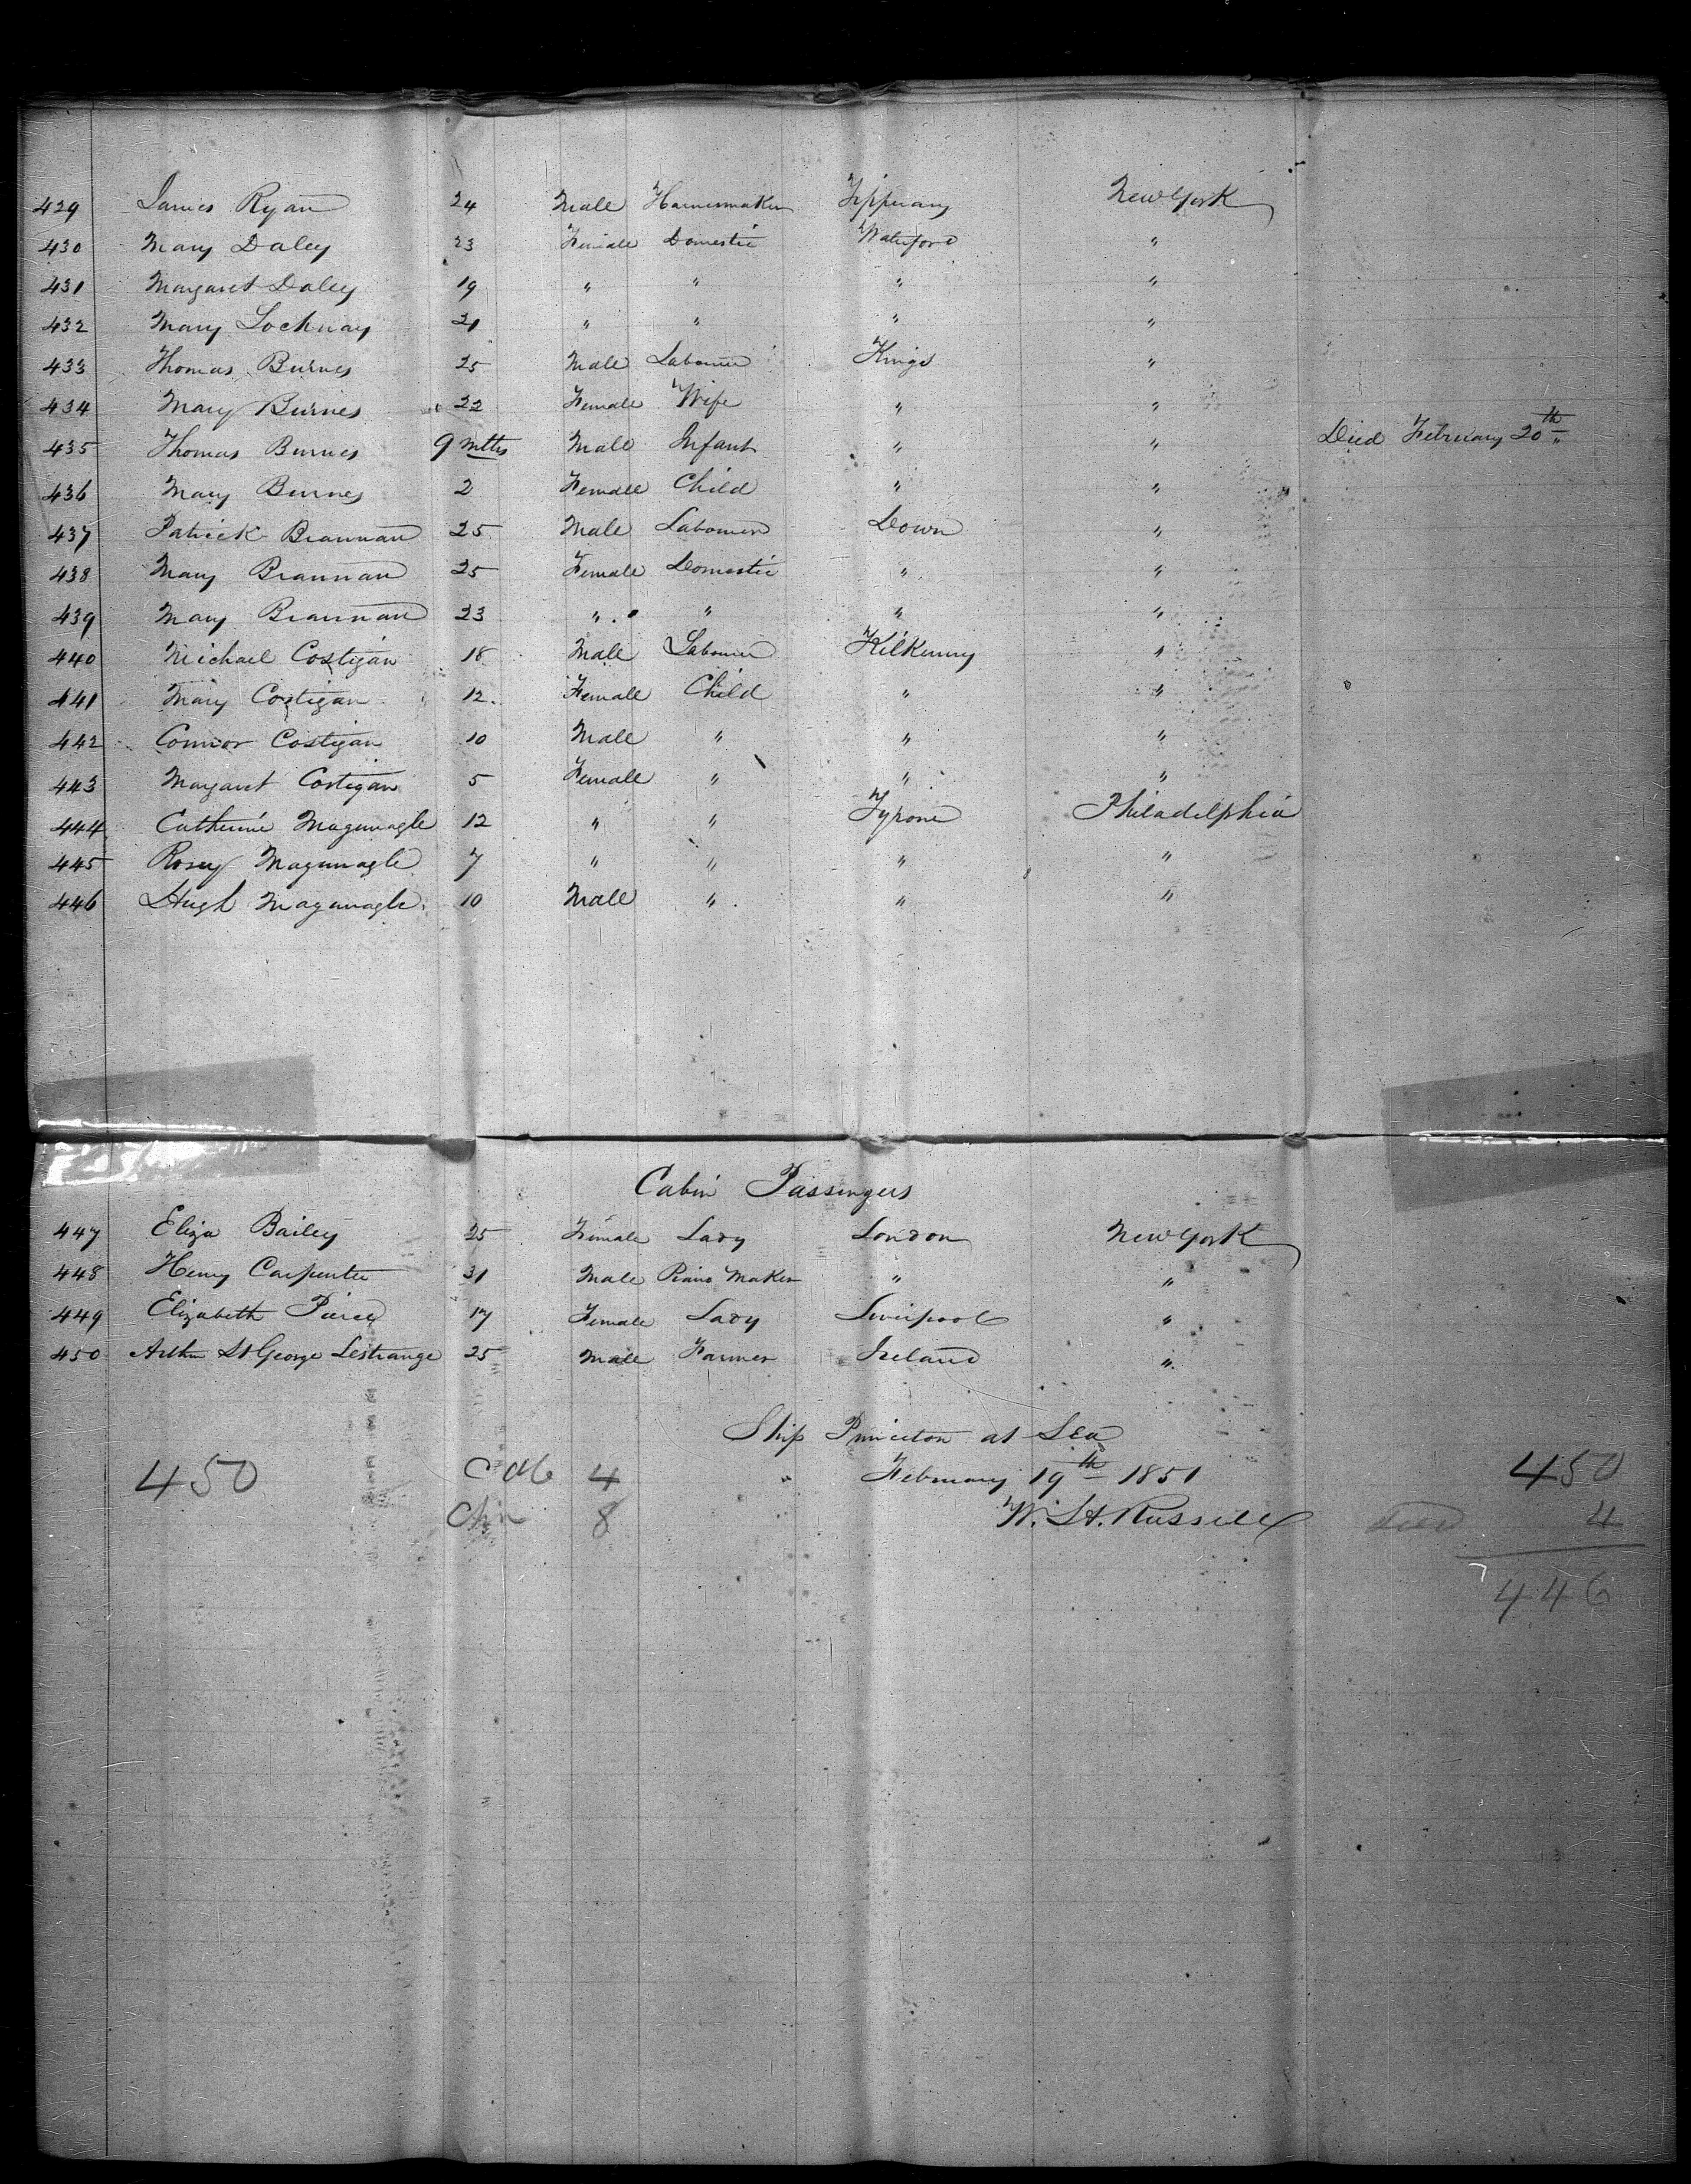 429 James Ryan 24 Male Harnessmaker Tipperary New York
430 Mary Daley 23 Female Domestic Waterford "
431 Margaret Daley 19 " " " "
432 Mary Lochnay 21 " " " "
433 Thomas Burnes 25 Male Labourer Kings "
434 Mary Burnes 22 Female Wife " "
435 Thomas Burnes 9 mths Male Infant " " Died February 20th "
436 Mary Burnes 2 Female Child " "
437 Patrick Brannan 25 Male Labourer Down "
438 Mary Brannan 25 Female Domestic " "
439 Mary Brannan 23 " " " "
440 Michael Costigan 18 Male Labourer Kilkenny "
441 Mary Costigan 12 Female Child " "
442 Connor Costigan 10 Male " " "
443 Margaret Costigan 5 Female " " "
444 Catherine Magunagle 12 " " Tyrone Philadelphia
445 Rosey Magunagle 7 " " " "
446 Hugh Magunagle 10 Male " " "
Cabin Passengers
447 Eliza Bailey 25 Female Lady London New York
448 Henry Carpenter 31 Male Piano Maker " "
449 Elizabeth Pierce 17 Female Lady Liverpool "
450 Arthur St George Lestrange 25 Male Farmer Ireland "
Ship Princeton at Sea
450 4 " February 19th 1851 450
8 W. H. Russell died 4
446